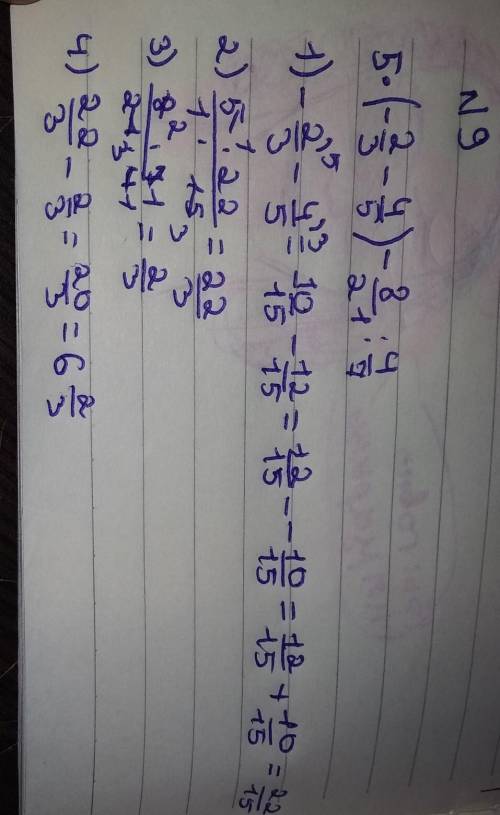 N 9
5 · (- 2/3 - 4/5) - 8/21 : 4/7
1) - 2/3 ,5 - 4/5 ,3 = 10/15 - 12/15 = 12/15 - - 10/15 = 12/15 + 10/15 = 22/15
2) 5/1 1 · 22/15 3 = 22/3
3) 8/21 2 3 · 7/4 1 1 = 2/3
4) 22/3 - 2/3 = 20/3 = 6 2/3